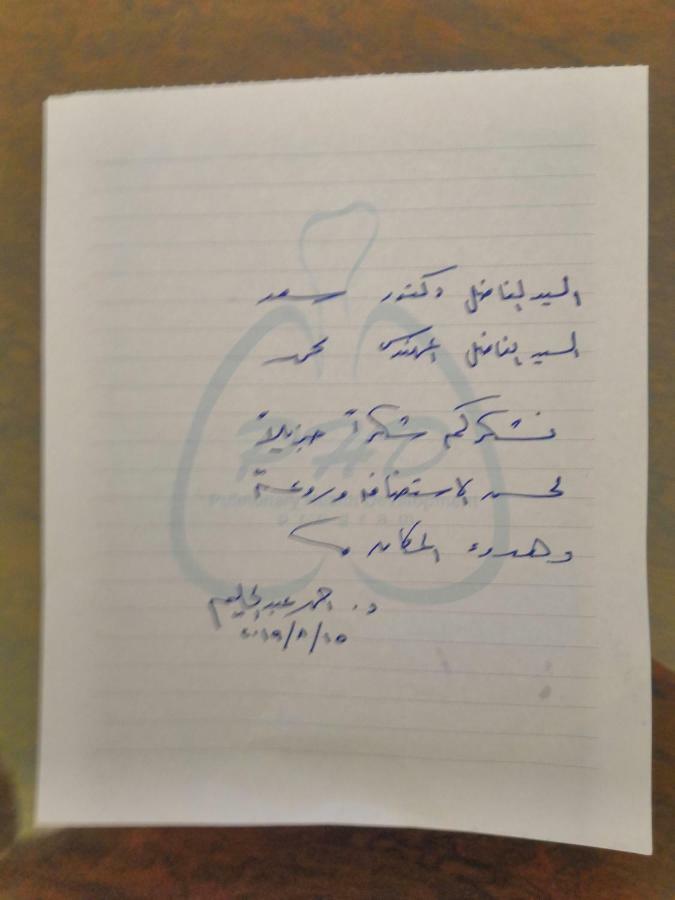 السيد الفاضل دكتور سعد
السيد الفاضل المهندس محمد
نشكركم شكراً جزيلاً
لحسن الاستضافة وروعة
وهدوء المكان
د. احمد عبد الحليم
٢٠١٩/٨/١٥